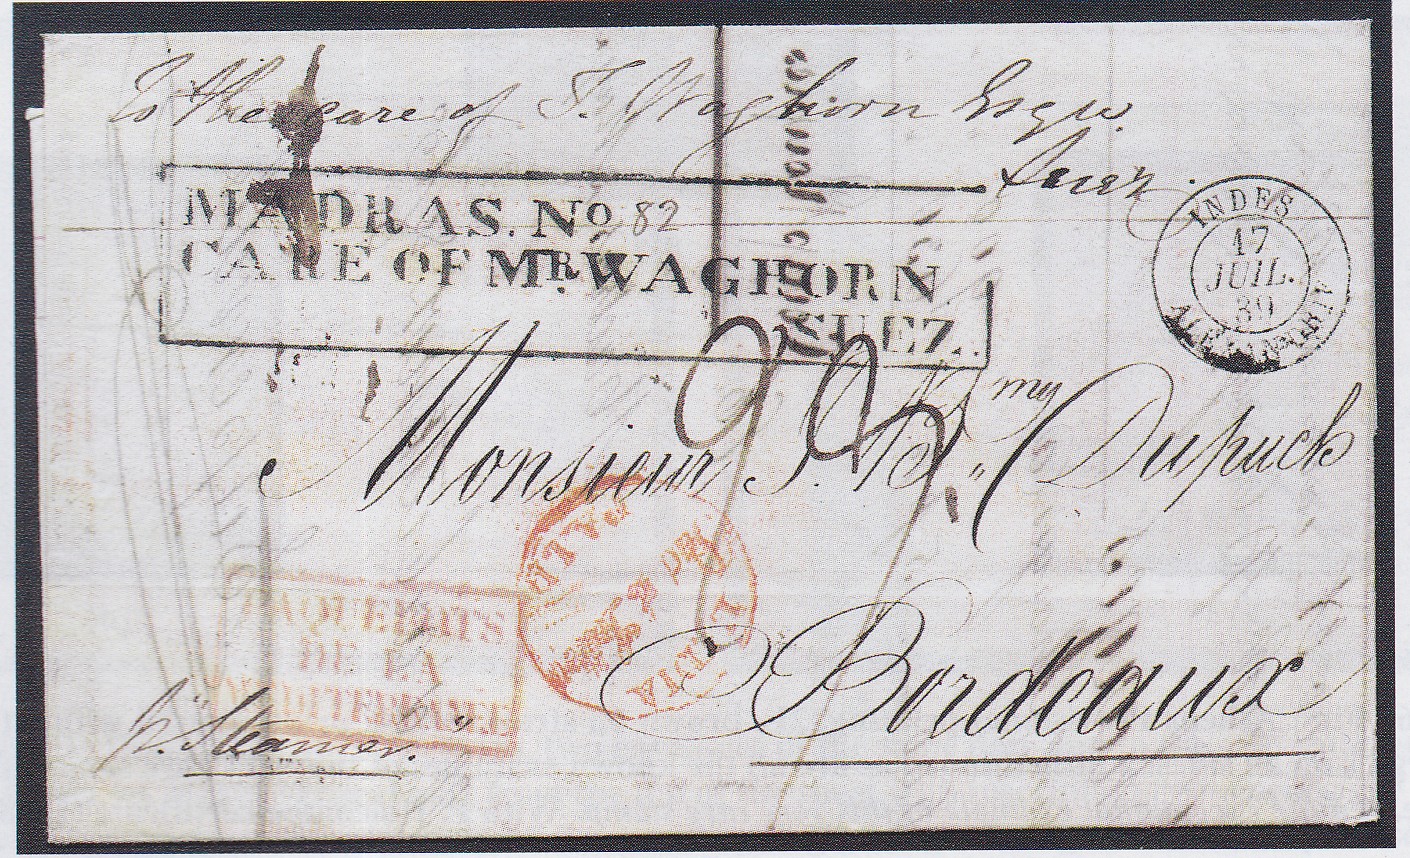 To the care of T. Waghorn Esqre.
Suez.
MADRAS. No 82
CARE OF MR. WAGHORN
SUEZ.
INDES
17
JUIL.
39
ALEXANDRIE
Monsieur J. Bmy Dupuch
Bordeaux
PAQUEBOTS
DE LA
MEDITERRANEE
PAID
INDIA
pr. Steamer.